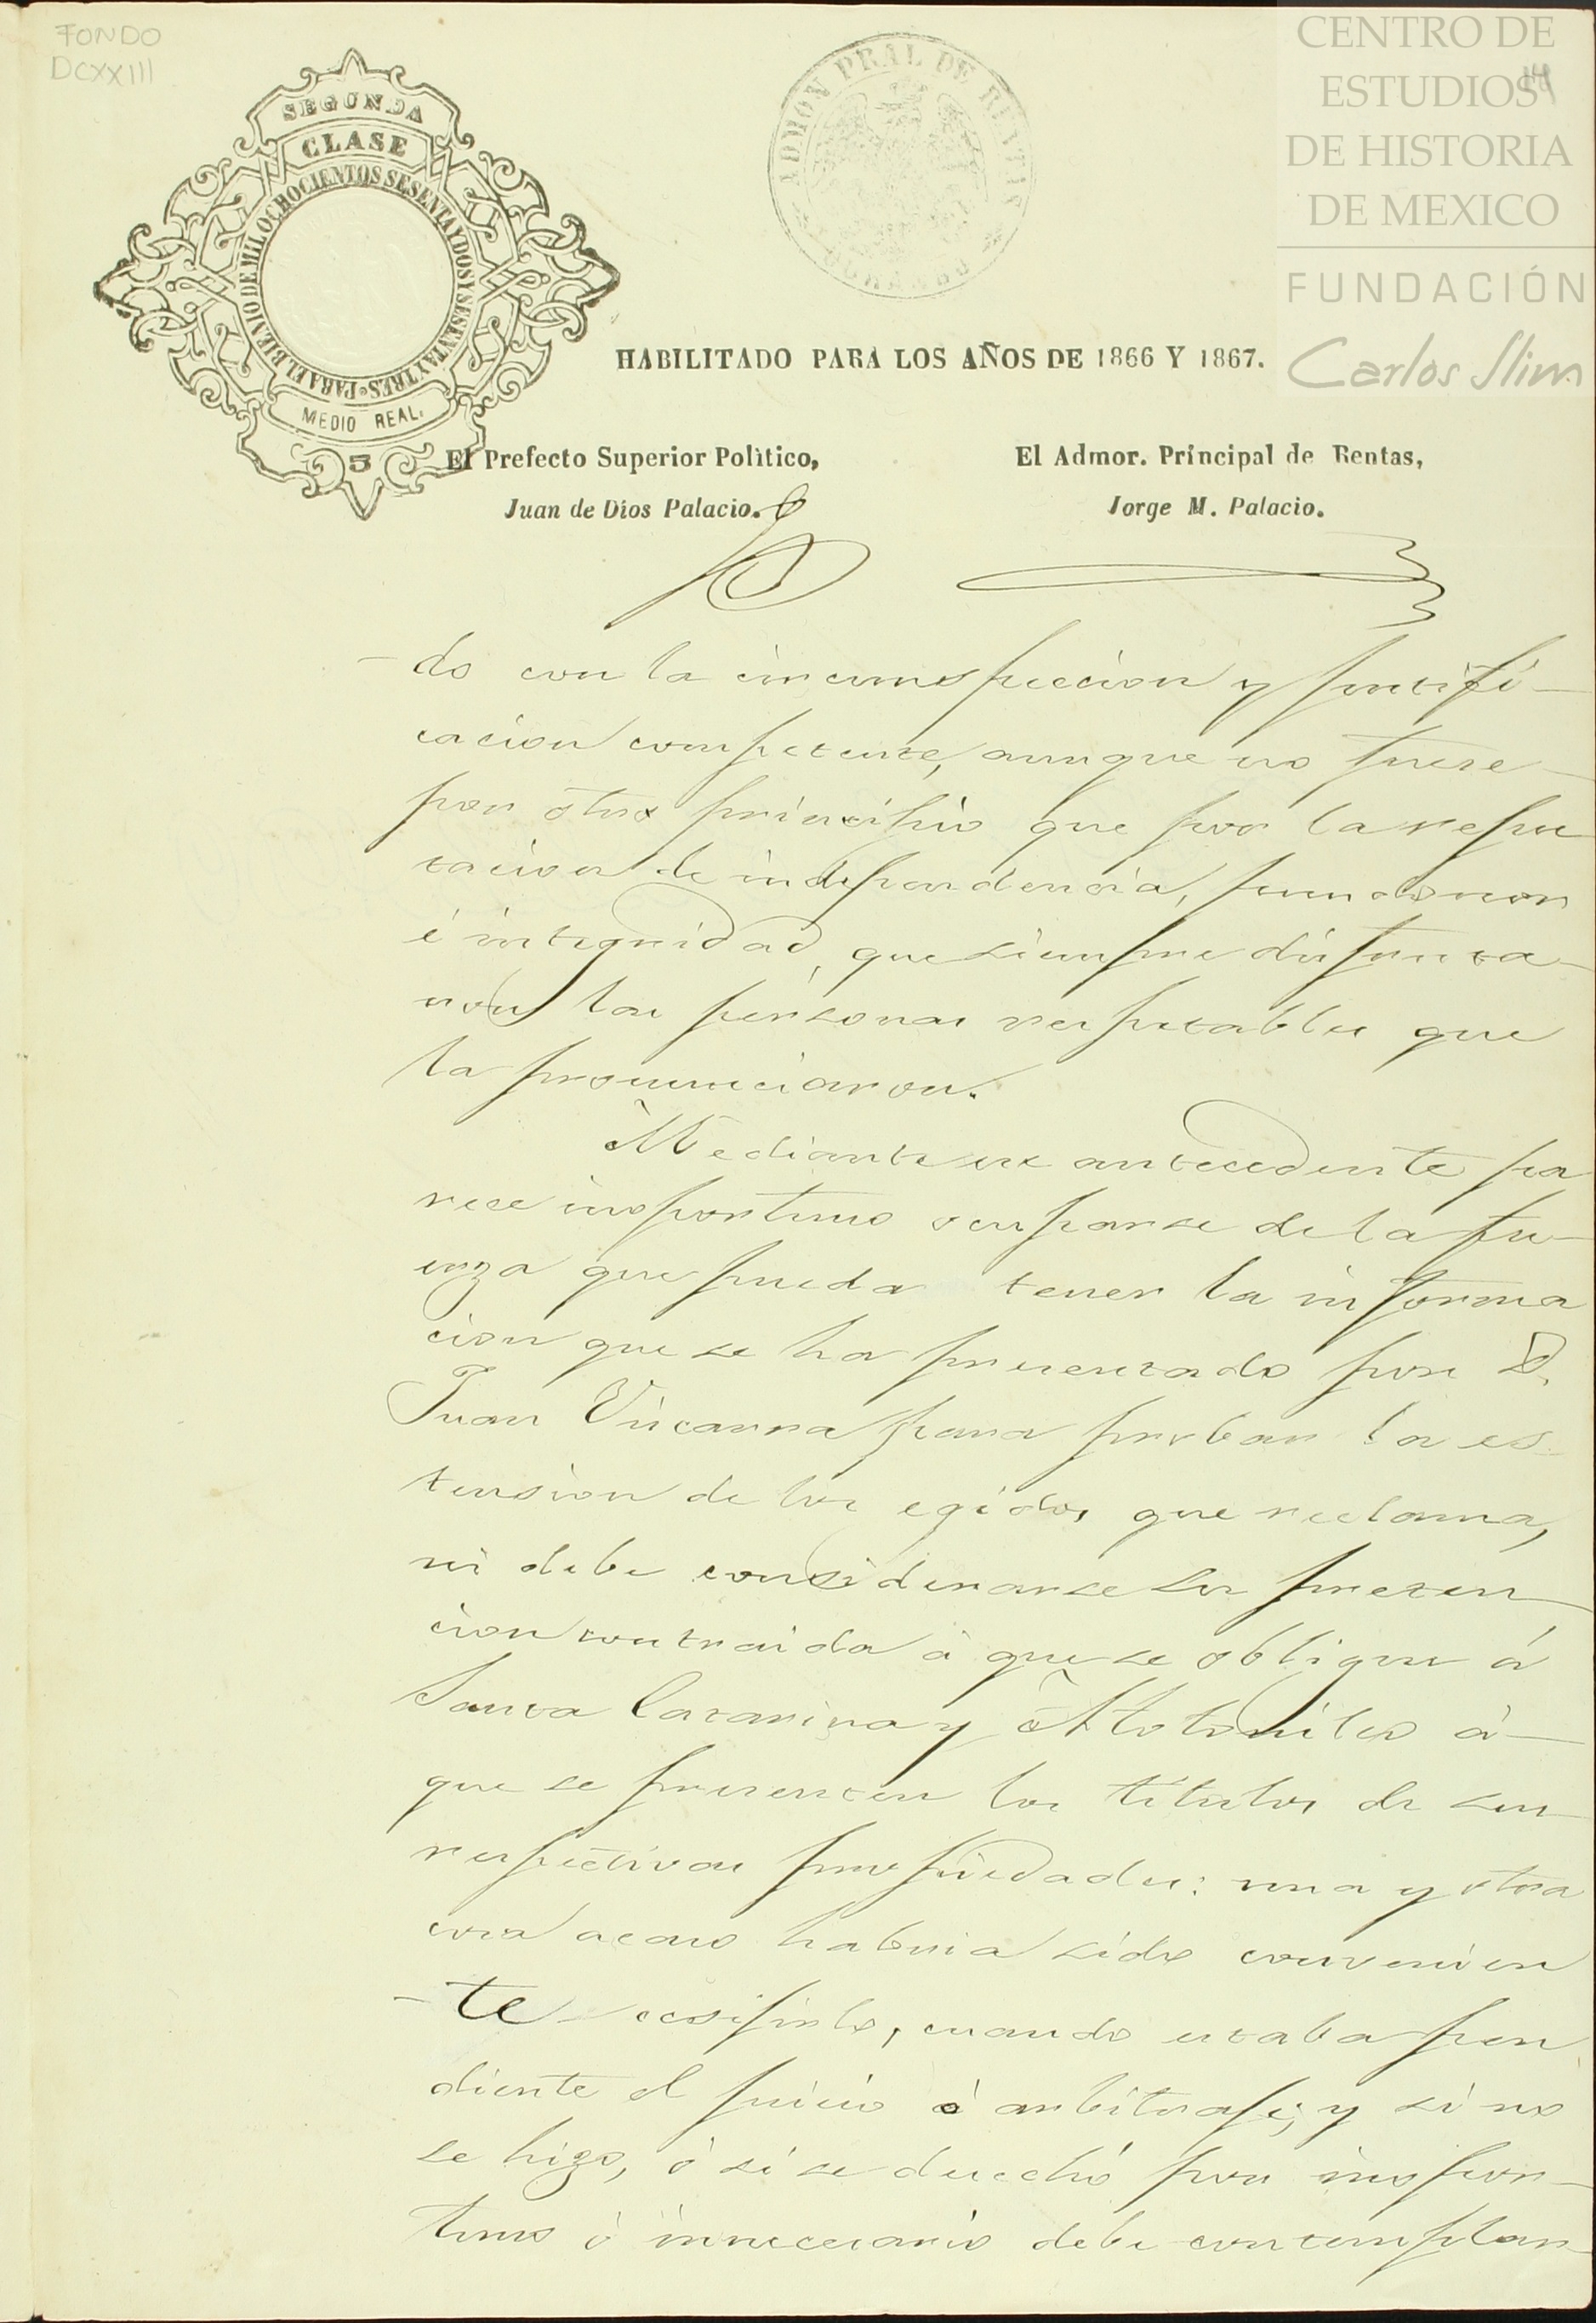 FONDO
DCXXIII
CENTRO DE
ESTUDIOS
DE HISTORIA
DE MEXICO
FUNDACIÓN
Carlos Slim
SEGUNDA
CLASE
PARA EL BIENIO DE MIL OCHOCIENTOS SESENTA Y DOS Y SESENTA Y TRES
MEDIO REAL.
5
ADMON PRAL DE RENTAS
DURANGO
HABILITADO PARA LOS AÑOS DE 1866 Y 1867.
El Prefecto Superior Politico,
El Admor. Principal de Rentas,
Juan de Dios Palacio.
Jorge M. Palacio.
do con la circunspeccion y justifi-
cacion competente, aunque no fuese
por otro principio que por la repu
tacion de independencia, pundonor
é integridad, que siempre disfruta-
ron las personas respetables que
la pronunciaron.
Mediante ese antecedente pa
rece inoportuno ocuparse de la fu-
erza que pueda tener la informa
cion que se ha presentado por D.
Juan Viscarra para probar la es-
tension de los egidos que reclama,
ni debe considerarse su preten-
cion contraida á que se obligue á
Santa Catarina y Atotonilco á
que se presenten los titulos de sus
respectivas propiedades: una y otra
cosa acaso habria sido convenien
-te ecsijirlo, cuando estaba pen
diente el juicio ó arbitraje; y si no
se hizo, ó si se desechó por inopor-
tuno ó innecesario debe contemplar-